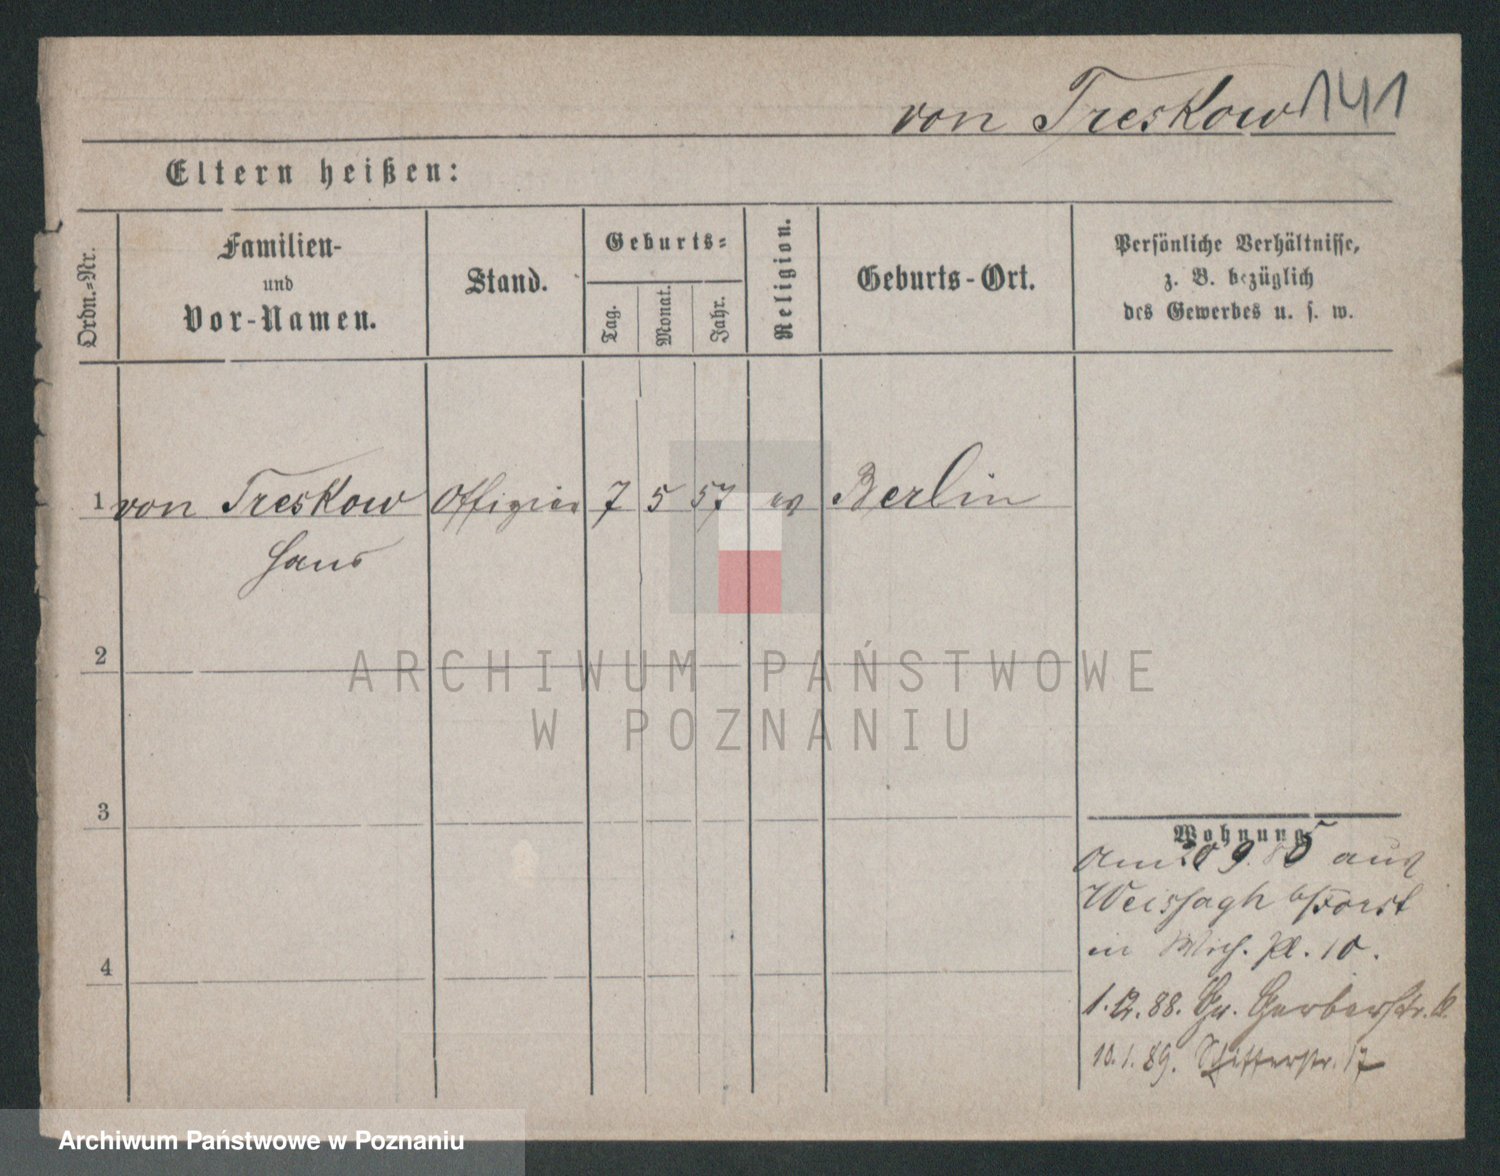 von Treskow 141
Eltern heißen:
Ordn.-Nr.
Familien-
und
Vor-Namen.
Stand.
Geburts-
Tag.
Monat.
Jahr.
Religion.
Geburts-Ort.
Persönliche Verhältnisse,
z. B. bezüglich
des Gewerbes u. s. w.
1 von Treskow Offizier 7 5 57 ev Berlin
Hans
2
3
4
Wohnung
am 9. 85 aus
Weissagh b/Forst
in Pl. 10.
1.12.88. Gr. Gerberstr.
10.1.89. Schifferstr. 17
ARCHIWUM PAŃSTWOWE
W POZNANIU
Archiwum Państwowe w Poznaniu